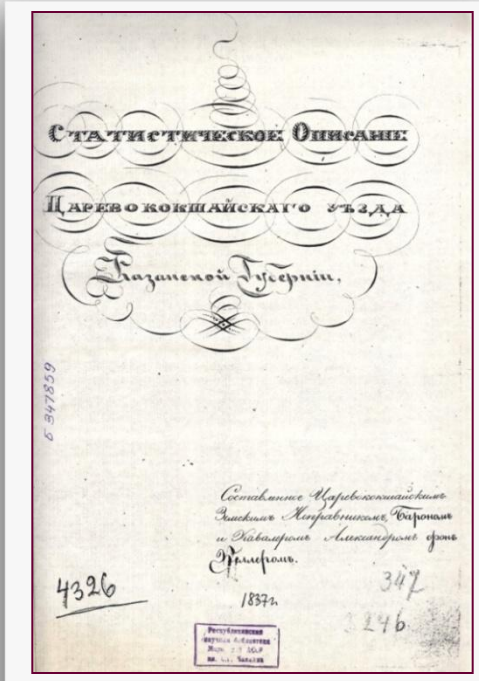 Статистическое Описанiе
Царевококшайскаго уѣзда
Казанской Губернiи,
Составленное Царевококшайскимъ
Земскимъ Исправникомъ, Барономъ
и Кавалеромъ Александромъ фонъ
Келлеромъ.
1837г.
4326
347
3246
Б 347859
Республиканская
научная библиотека